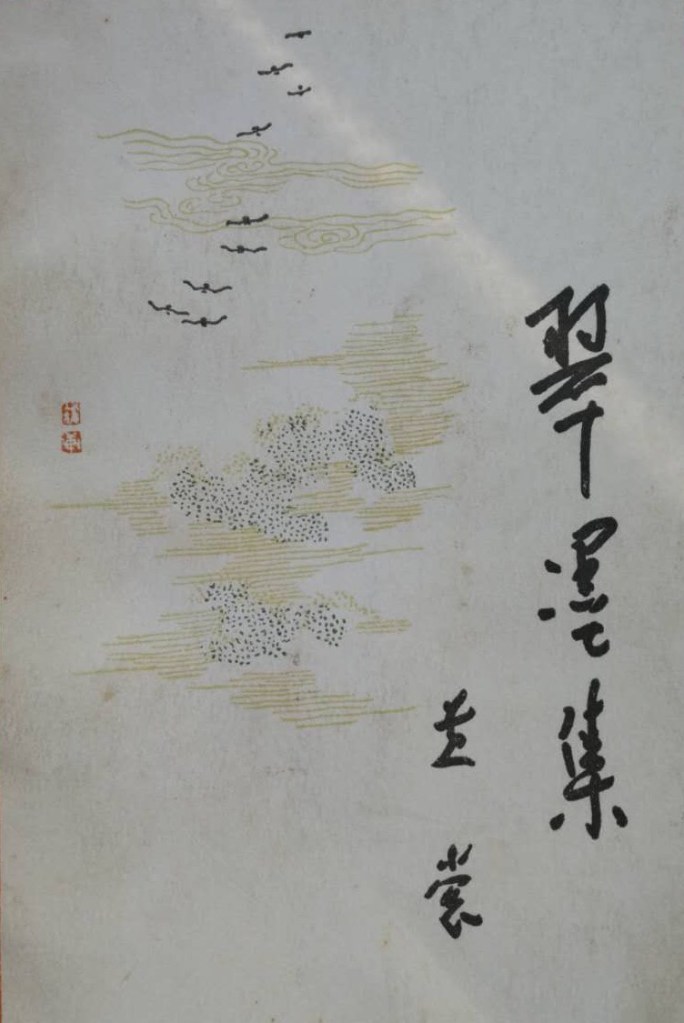 翠墨集
黄裳